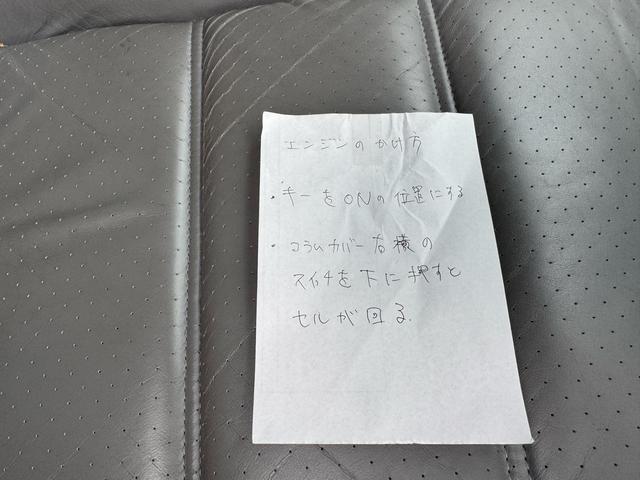 エンジンのかけ方
・キーをONの位置にする
・コラムカバー右横の
スイッチを下に押すと
セルが回る.